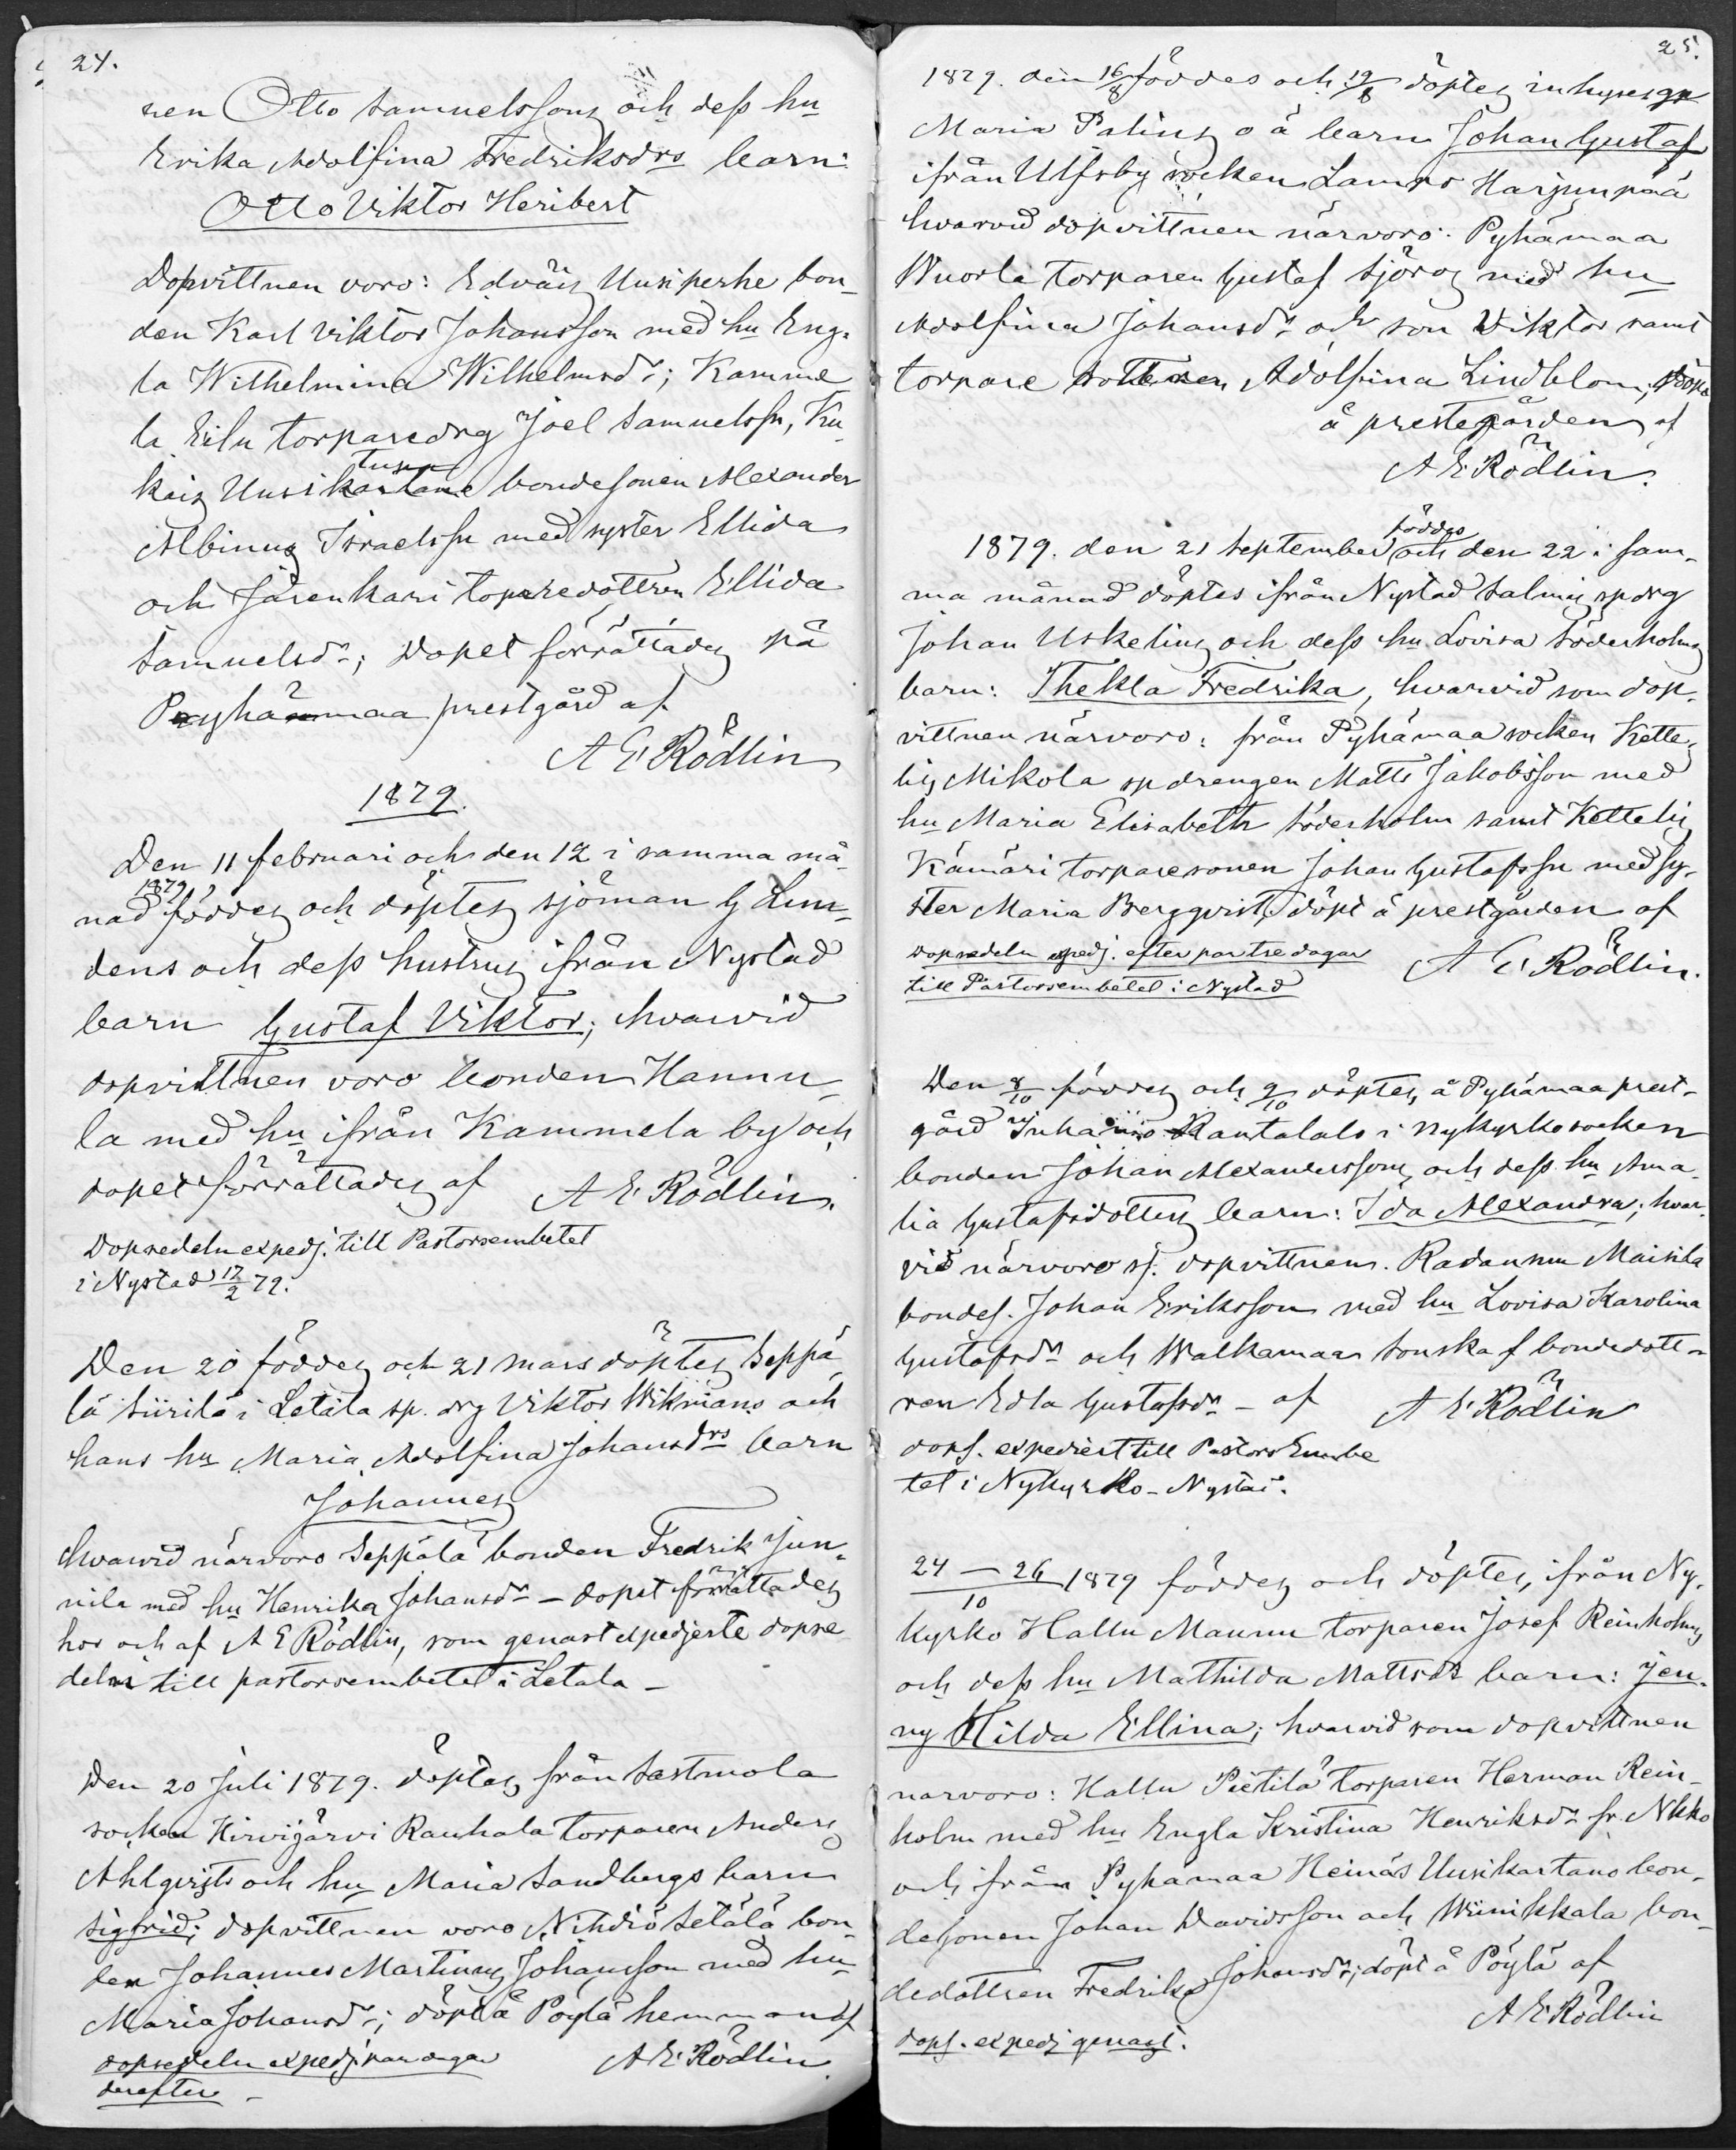 24.
nen Otto Samuelssons och dess hu
Erika Adolfina Fredriksdrs barn:
Otto Viktor Heribert
Dopvittnen voro: Edväis Uusiperhe bon-
den Karl Viktor Johansson med hu Eng-
la Wilhelmina Wilhelmsdr; Kamme
la Eilu torparedrg Joel Samuelssn, Ku-
kais Uusikartano bondesonen Alexander
Albinus Israelssn med syster Ellida
och Järenkari toparedottren Ellida
Samuelsdr; Dopet förrättades på
Pyhämaa prestgård af
A E Rödlin
1879.
Den 11 februari och den 12 i samma må-
1879
nad föddes och döptes sjöman G Lin-
dens och dess hustrus ifrån Nystad
barn Gustaf Viktor; hvarvid
dopvittnen voro bonden Hannu-
la med hu ifrån Kammela by och
dopet förrättades af A E Rödlin.
Dopsedeln expedj. till Pastorsembetet
i Nystad 17/2 79.
Den 20 föddes och 21 mars döptes Seppä-
lä Siirilä i Letala sp. drg Viktor Wikmans och
hans hu Maria Adolfina Johansdrs barn
Johannes
hvarvid närvoro Seppälä bonden Fredrik Jun-
nila med hu Henrika Johansdr - dopet förrättades
hos och af A E Rödlin, som genast expedjerte dopse
deln till pastorsembetet i Letala -
Den 20 Juli 1879. döptes från Sastmola
socken Hirvijärvi Rauhala torparen Anders
Ahlqvists och hu Maria Sandbergs barn
Sigfrid; dopvittnen voro Nihdiö Setälä bon-
den Johannes Martinus Johansson med hu
Maria Johansdr; döpt å Pöylä hemman af
dopsedeln expedj. par dagar A E Rödlin.
derefter -
25.
1879. den 16/8 föddes och 19/8 döptes inhyses
Maria Palins o ä barn Johan Gustaf
ifrån Ulfsby socken Harjunpää
hvarvid dopvittnen närvoro: Pyhämaa
Wuorla torparen Gustaf Sjöros med hu
Adolfina Johansdr och son Viktor samt
torpare dottren Adolfina Lindblom; döpt
å prestegården af
A E Rödlin.
föddes
1879. den 21 September och den 22 i sam-
ma månad döptes ifrån Nystad Salmis sp drg
Johan Uskelins och dess hu Lovisa Söderholms
barn: Thekla Fredrika, hvarvid som dop-
vittnen närvoro: från Pyhämaa socken Kette-
lis Mikola sp drengen Matts Jakobsson med
hu Maria Elisabeth Söderholm samt Kettelis
Kämäri torparesonen Johan Gustafssn med sy-
ster Maria Bergqvist, döpt å prestgården af
dopsedeln expedj. efter par tre dagar A E Rödlin.
till Pastorsembetet i Nystad
Den 8/10 föddes och 9/10 döptes, å Pyhämaa prest-
gård Rantalals i Nykyrko socken
bonden Johan Alexanderssons och dess hu Ama-
lia Gustafsdotters barn: Ida Alexandra; hvar-
vid närvoro sj. dopvittnen. Radansuu Maisila
bondes. Johan Eriksson med hu Lovisa Karolina
Gustafsdr och Walkamaa Souska f bondedott-
ren Edla Gustafsdr - af A E Rödlin
dops. expediert till Pastors Embe
tet i Nykyrko - Nystad.
24 - 26/10 1879 föddes och döptes, ifrån Ny-
kyrko Hallu Maunu torparen Josef Reinholms
och dess hu Mathilda Mattsdrs barn: Jen-
ny Hilda Ellina; hvarvid som dopvittnen
närvoro: Hallu Pietilä torparen Herman Rein-
holm med hu Engla Kristina Henriksdr fr. Nkko
och ifrån Pyhämaa Heinäs Uusikartano bon-
desonen Johan Davidsson och Wiinikkala bon-
dedottren Fredrika Johansdr; döpt å Pöylä af
A E Rödlin
dops. expedj genast.